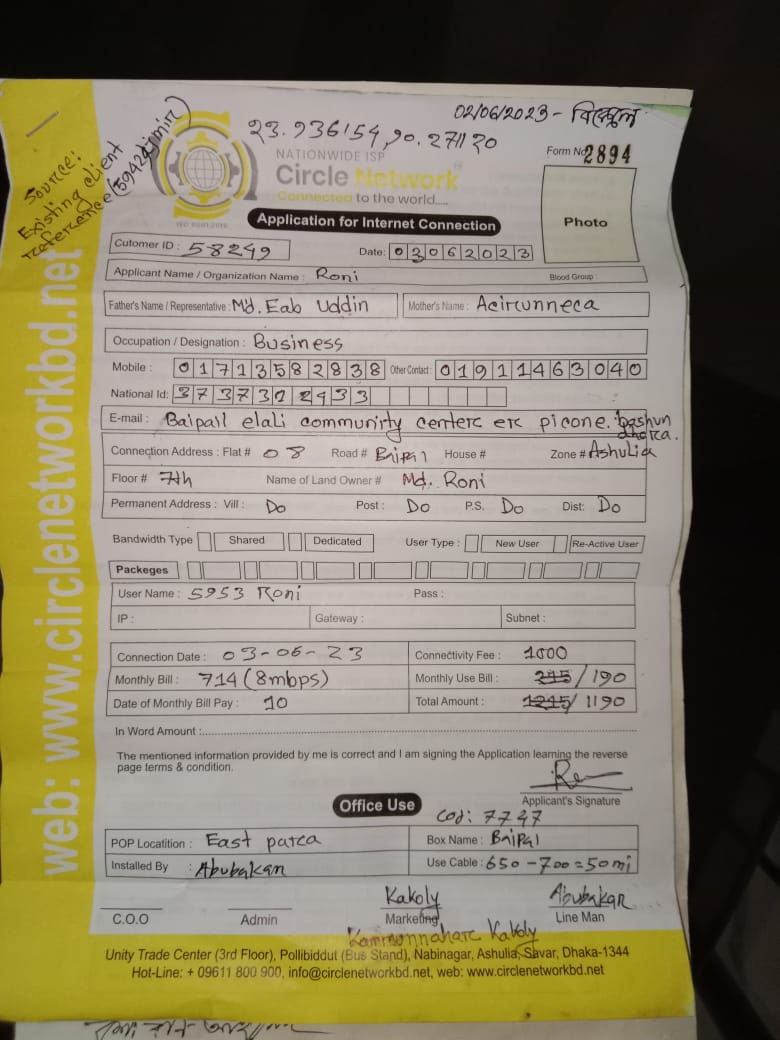 02/06/2023 - বিকেল
23.936154, 90.271120
Source:
Existing client
reference (5942
NATIONWIDE ISP
Circle Network
Connected to the world.....
ISO 9001:2015
Form No 2894
Photo
Application for Internet Connection
Cutomer ID : 58249
Date: 03062023
Applicant Name / Organization Name : Roni
Blood Group :
Father's Name / Representative : Md. Eab Uddin
Mother's Name : Acirunneca
Occupation / Designation : Business
Mobile : 01713582838 Other Contact : 01911463040
National Id: 3737322433
E-mail : Baipail elali community center er picone. bashun
dhara.
Connection Address : Flat # 08 Road # Baipal House # Zone # Ashulia
Floor # 7th Name of Land Owner # Md. Roni
Permanent Address : Vill : Do Post : Do P.S. Do Dist: Do
Bandwidth Type Shared Dedicated User Type : New User Re-Active User
Packeges
User Name : 5953 Roni Pass :
IP : Gateway : Subnet :
Connection Date : 03-06-23 Connectivity Fee : 1000
Monthly Bill : 714 (8mbps) Monthly Use Bill : 245/190
Date of Monthly Bill Pay : 10 Total Amount : 1245/1190
In Word Amount :
The mentioned information provided by me is correct and I am signing the Application learning the reverse
page terms & condition.
Applicant's Signature
Office Use
Cod: 7747
POP Locatition : East para Box Name : Baipal
Installed By : Abubakar Use Cable : 650-700=50mi
Kakoly Abubakar
C.O.O Admin Marketing Line Man
Kamrunnahar Kakoly
Unity Trade Center (3rd Floor), Pollibiddut (Bus Stand), Nabinagar, Ashulia, Savar, Dhaka-1344
Hot-Line: + 09611 800 900, info@circlenetworkbd.net, web: www.circlenetworkbd.net
web: www.circlenetworkbd.net